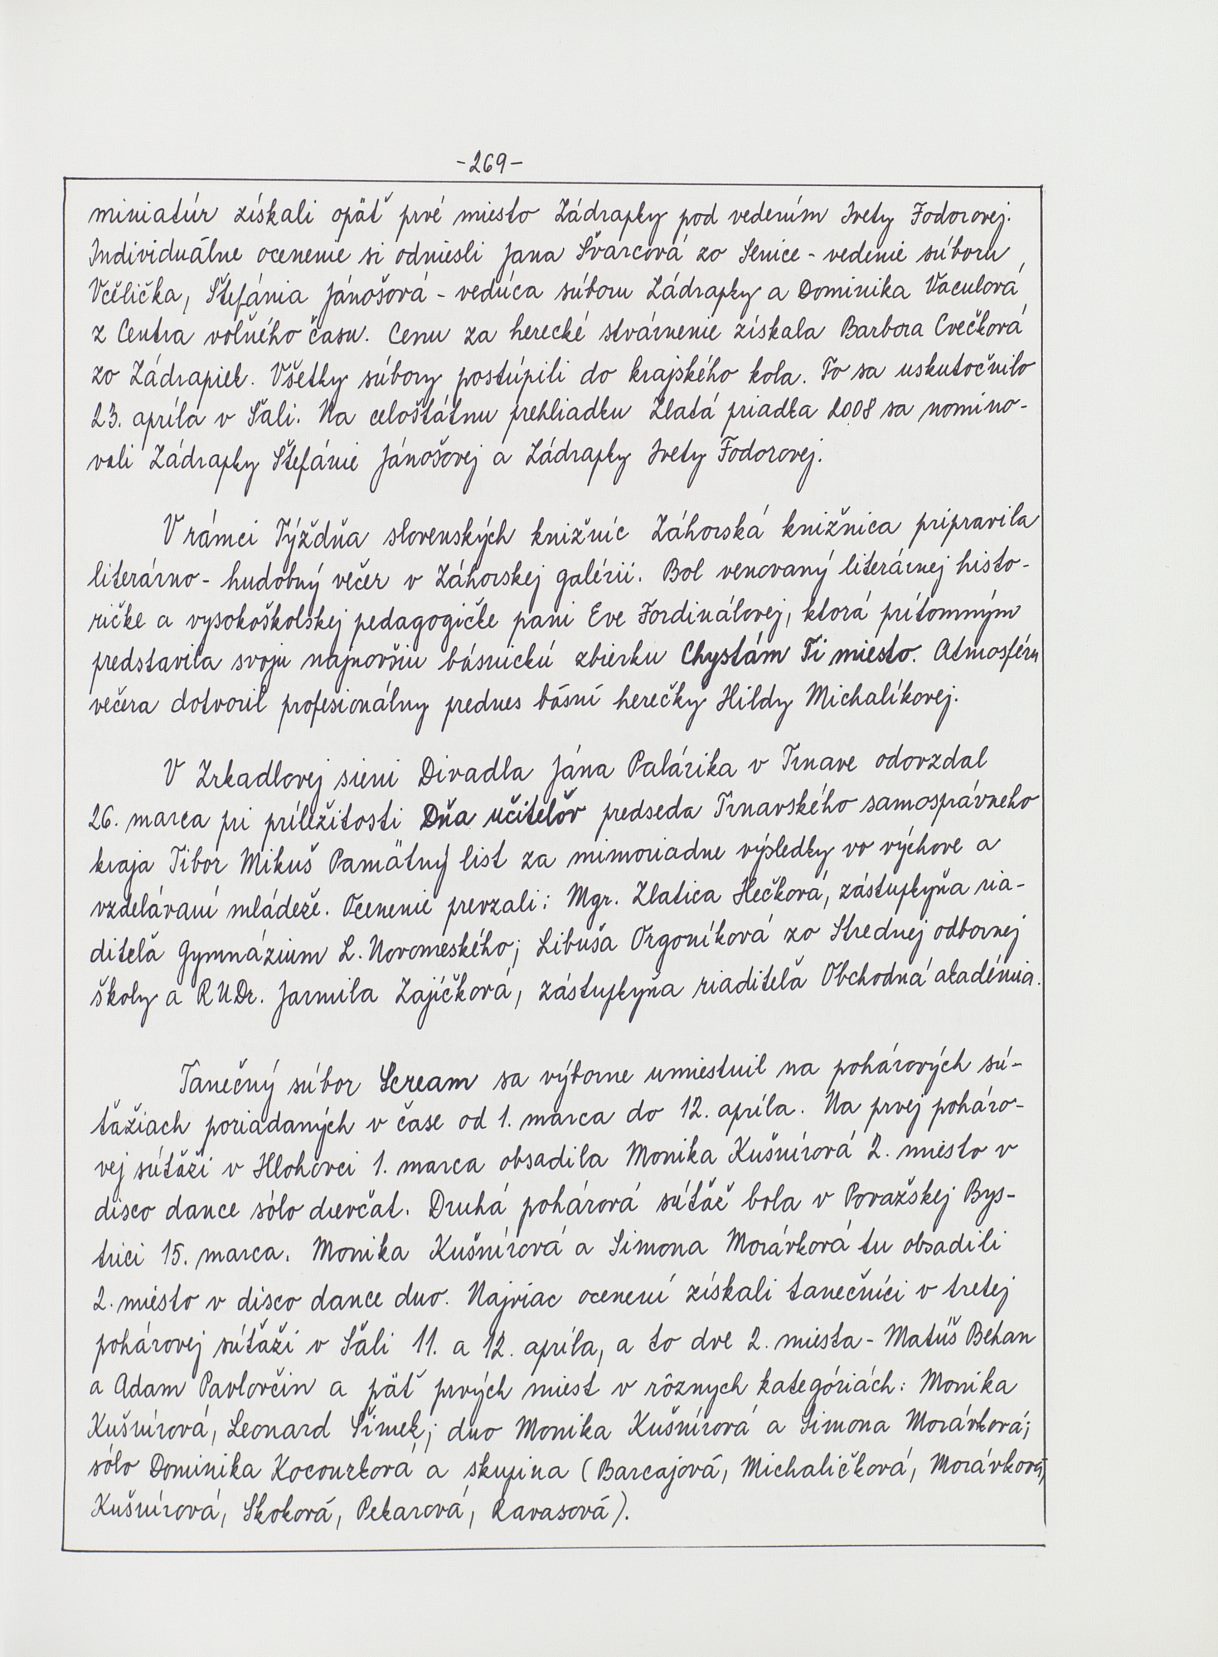 -269-
miniatúr získali opäť prvé miesto Zádrapky pod vedením Ivety Fodorovej.
Individuálne ocenenie si odniesli Jana Švarcová zo Senice - vedenie súboru
Včielička, Štefánia Jánošová - vedúca súboru Zádrapky a Dominika Vaculová
z Centra voľného času. Cenu za herecké stvárnenie získala Barbora Cvečková
zo Zádrapiek. Všetky súbory postúpili do krajského kola. To sa uskutočnilo
23. apríla v Šali. Na celoštátnu prehliadku Zlatá priadka 2008 sa nomino-
vali Zádrapky Štefánie Jánošovej a Zádrapky Ivety Fodorovej.
V rámci Týždňa slovenských knižníc Záhorská knižnica pripravila
literárno - hudobný večer v Záhorskej galérii. Bol venovaný literárnej histo-
ričke a vysokoškolskej pedagogičke pani Eve Fordinálovej, ktorá prítomným
predstavila svoju najnovšiu básnickú zbierku Chystám Ti miesto. Atmosféru
večera dotvoril profesionálny prednes básní herečky Hildy Michalíkovej.
V Zrkadlovej sieni Divadla Jána Palárika v Trnave odovzdal
26. marca pri príležitosti Dňa učiteľov predseda Trnavského samosprávneho
kraja Tibor Mikuš Pamätný list za mimoriadne výsledky vo výchove a
vzdelávaní mládeže. Ocenenie prevzali: Mgr. Zlatica Hečková, zástupkyňa ria-
diteľa Gymnázium L. Novomeského; Libuša Orgoníková zo Strednej odbornej
školy a RUDr. Jarmila Zajíčková, zástupkyňa riaditeľa Obchodná akadémia.
Tanečný súbor Scream sa výborne umiestnil na pohárových sú-
ťažiach poriadaných v čase od 1. marca do 12. apríla. Na prvej poháro-
vej súťaži v Hlohovci 1. marca obsadila Monika Kušnírová 2. miesto v
disco dance sólo dievčat. Druhá pohárová súťaž bola v Považskej Bys-
trici 15. marca. Monika Kušnírová a Simona Morávková tu obsadili
2. miesto v disco dance duo. Najviac ocenení získali tanečníci v tretej
pohárovej súťaži v Šali 11. a 12. apríla, a to dve 2. miesta - Matúš Behan
a Adam Pavlovčin a päť prvých miest v rôznych kategóriách: Monika
Kušnírová, Leonard Šimek; duo Monika Kušnírová a Simona Morávková;
sólo Dominika Kocourková a skupina (Barcajová, Michaličková, Morávková,
Kušnírová, Skoková, Pekarová, Ravasová).